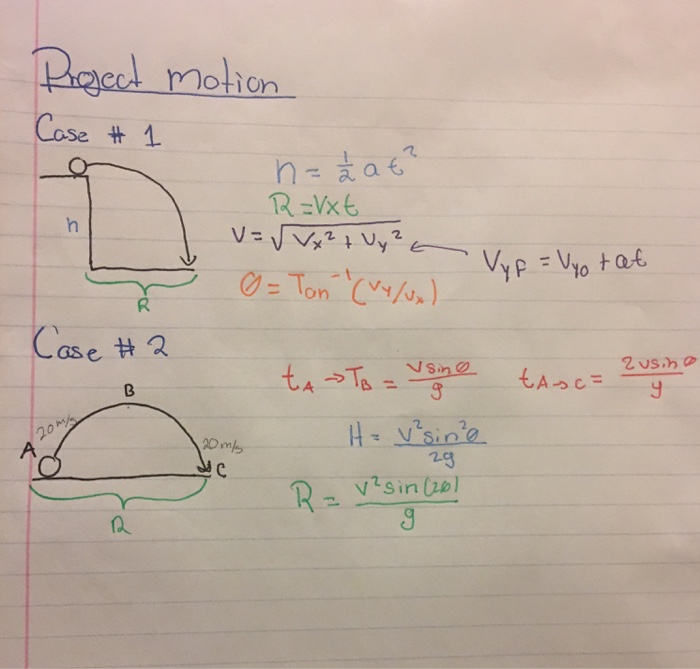 Project motion
Case # 1
h
R
h = 1/2 at²
R = Vxt
V = √Vx² + Vy²
VyF = Vyo + at
θ = Tan⁻¹(Vy/Vx)
Case # 2
A
20m/s
B
20m/s
C
R
tA → TB = Vsinθ/g
tA→C = 2vsinθ/g
H = V²sin²θ/2g
R = V²sin(2θ)/g